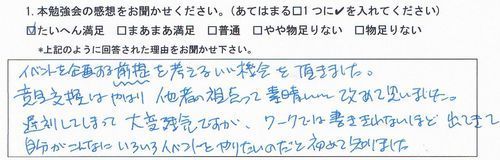 1. 本勉強会の感想をお聞かせください。(あてはまる□1つに✔を入れてください)
☑たいへん満足 □まあまあ満足 □普通 □やや物足りない □物足りない
*上記のように回答された理由をお聞かせ下さい。
イベントを企画する前提を考えるいい機会を頂きました。
意見交換はやはり他者の視点って素晴しい、改めて思いました。
遅刻してしまって大変残念ですが、ワークでは書ききれないほど出てきて
自分がこんなにいろいろイベントをやりたいのだと初めて知りました。